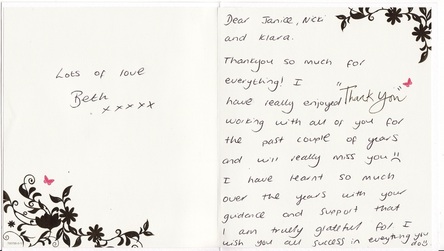 Lots of love
Beth
xxxxx
Dear Janice, Nicki
and Klara.
Thankyou so much for
everything! I
"Thank You"
have really enjoyed
working with all of you for
the past couple of years
and will really miss you
I have learnt so much
over the years with your
guidance and support that
I am truely grateful for I
wish you all success in everything you
do x